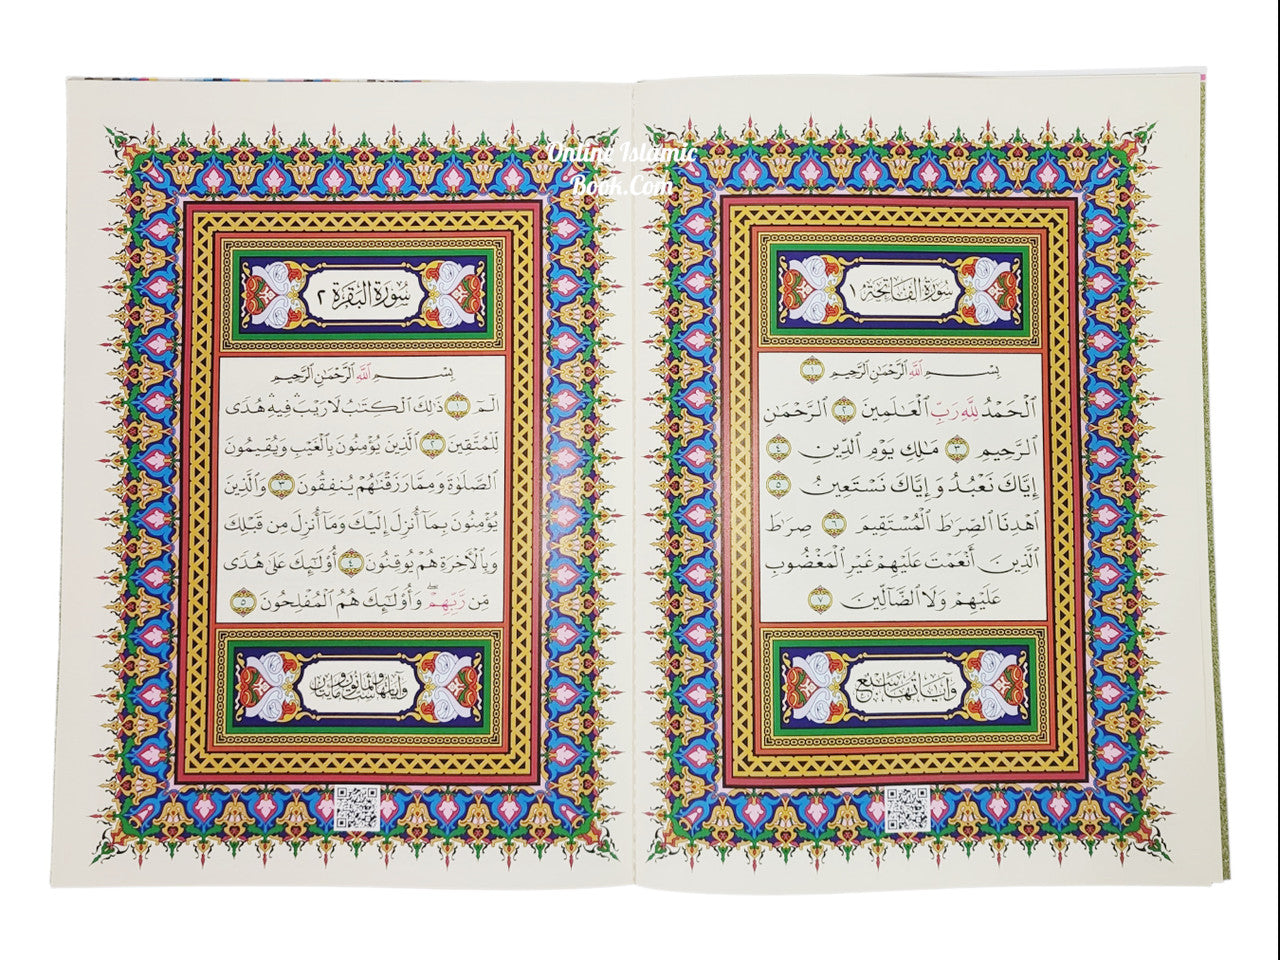 Online Islamic
Book.Com
سورة الفاتحة ١
بِسْمِ ٱللَّهِ ٱلرَّحْمَٰنِ ٱلرَّحِيمِ ١
ٱلْحَمْدُ لِلَّهِ رَبِّ ٱلْعَٰلَمِينَ ٢ ٱلرَّحْمَٰنِ
ٱلرَّحِيمِ ٣ مَٰلِكِ يَوْمِ ٱلدِّينِ ٤
إِيَّاكَ نَعْبُدُ وَإِيَّاكَ نَسْتَعِينُ ٥
ٱهْدِنَا ٱلصِّرَٰطَ ٱلْمُسْتَقِيمَ ٦ صِرَٰطَ
ٱلَّذِينَ أَنْعَمْتَ عَلَيْهِمْ غَيْرِ ٱلْمَغْضُوبِ
عَلَيْهِمْ وَلَا ٱلضَّآلِّينَ ٧
وآياتها سبع
سورة البقرة ٢
بِسْمِ ٱللَّهِ ٱلرَّحْمَٰنِ ٱلرَّحِيمِ
الٓمٓ ١ ذَٰلِكَ ٱلْكِتَٰبُ لَا رَيْبَ ۛ فِيهِ ۛ هُدًى
لِّلْمُتَّقِينَ ٢ ٱلَّذِينَ يُؤْمِنُونَ بِٱلْغَيْبِ وَيُقِيمُونَ
ٱلصَّلَوٰةَ وَمِمَّا رَزَقْنَٰهُمْ يُنفِقُونَ ٣ وَٱلَّذِينَ
يُؤْمِنُونَ بِمَآ أُنزِلَ إِلَيْكَ وَمَآ أُنزِلَ مِن قَبْلِكَ
وَبِٱلْءَاخِرَةِ هُمْ يُوقِنُونَ ٤ أُو۟لَٰٓئِكَ عَلَىٰ هُدًى
مِّن رَّبِّهِمْ ۖ وَأُو۟لَٰٓئِكَ هُمُ ٱلْمُفْلِحُونَ ٥
وآياتها ست وثمانون ومائتان